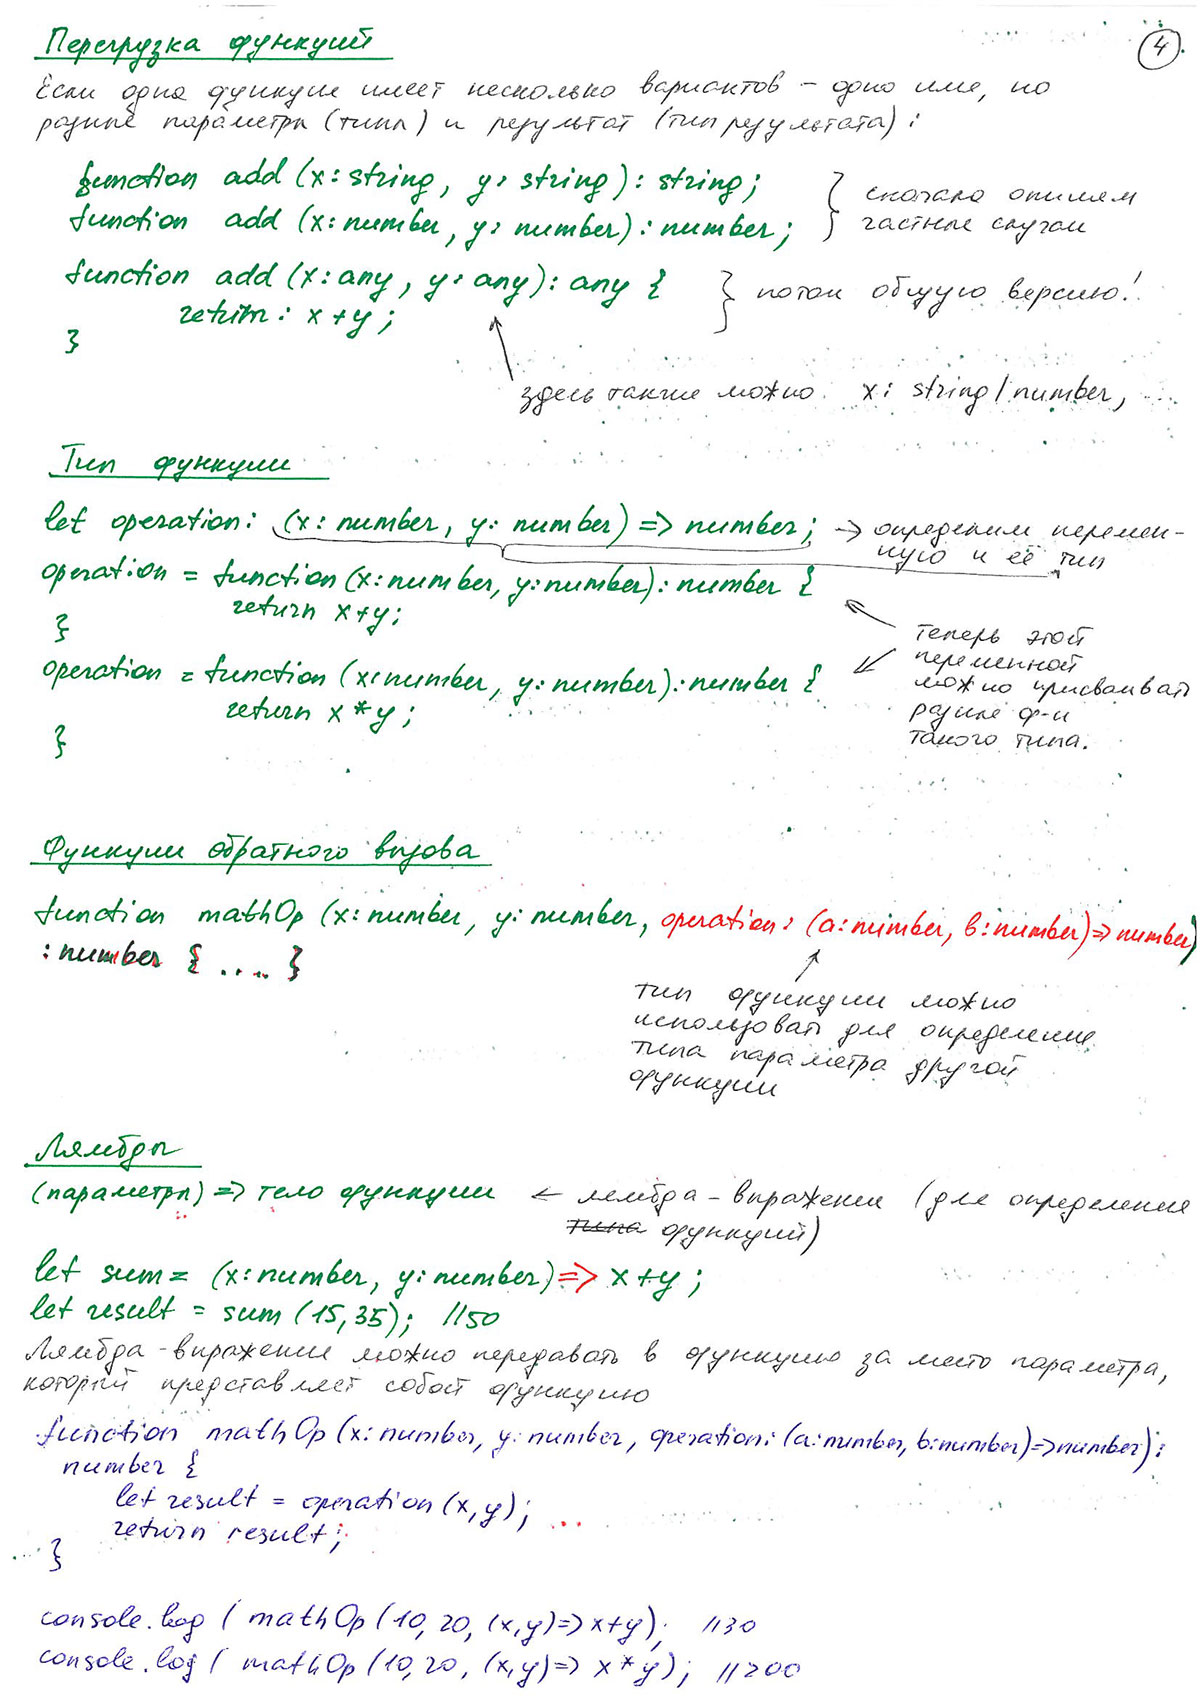 4
Перегрузка функций
Если одна функция имеет несколько вариантов – одно имя, но
разные параметры (типы) и результат (тип результата):
function add (x: string, y: string): string;
function add (x: number, y: number): number;
} сначала опишем
частные случаи
function add (x: any, y: any): any {
return: x + y;
}
} потом общую версию!
здесь также можно x: string | number, ...
Тип функции
let operation: (x: number, y: number) => number; → определим перемен-
ную и её тип
operation = function (x: number, y: number): number {
return x+y;
}
operation = function (x: number, y: number): number {
return x * y;
}
Теперь этой
переменной
можно присваивать
разные ф-и
такого типа.
Функции обратного вызова
function mathOp (x: number, y: number, operation: (a: number, b: number) => number)
: number { .... }
тип функции можно
использовать для определение
типа параметра другой
функции
Лямбды
(параметры) => тело функции ← лямбда-выражения (для определения
типа функций)
let sum = (x: number, y: number) => x + y;
let result = sum (15, 35); //50
Лямбда-выражение можно передавать в функцию за место параметра,
который представляет собой функцию
function mathOp (x: number, y: number, operation: (a: number, b: number) => number):
number {
let result = operation (x, y);
return result;
}
console.log ( mathOp (10, 20, (x,y) => x+y); //30
console.log ( mathOp (10, 20, (x,y) => x * y); //200